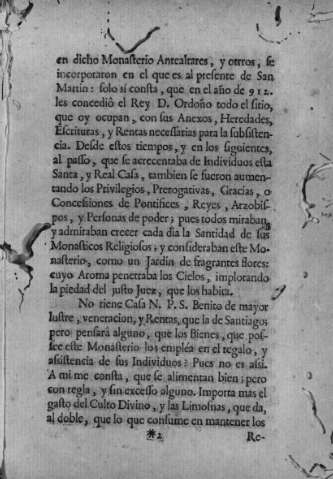 en dicho Monaſterio Antealtares, y otros, ſe
incorporaron en el que es al preſente de San
Martin: ſolo ſi conſta, que en el año de 912.
les concediò el Rey D. Ordoño todo el ſitio,
que oy ocupan, con ſus Anexos, Heredades,
Eſcrituras, y Rentas neceſſarias para la ſubſiſten-
cia. Deſde eſtos tiempos, y en los ſiguientes,
al paſſo, que ſe acrecentaba de Individuos eſta
Santa, y Real Caſa, tambien ſe fueron aumen-
tando los Privilegios, Prerogativas, Gracias, o
Conceſsiones de Pontifices, Reyes, Arzobiſ-
pos, y Perſonas de poder; pues todos miraban,
y admiraban crecer cada dia la Santidad de ſus
Monaſticos Religioſos; y conſideraban eſte Mo-
naſterio, como un Jardin de fragrantes flores:
cuyo Aroma penetraba los Cielos, implorando
la piedad del juſto Juez, que los habita.
No tiene Caſa N. P. S. Benito de mayor
luſtre, veneracion, y Rentas, que la de Santiago;
pero penſarà alguno, que los Bienes, que poſ-
ſee eſte Monaſterio los emplea en el regalo, y
aſsiſtencia de ſus Individuos: Pues no es aſsi.
A mi me conſta, que ſe alimentan bien; pero
con regla, y ſin exceſſo alguno. Importa mas el
gaſto del Culto Divino, y las Limoſnas, que da,
al doble, que lo que conſume en mantener los
*2 Re-